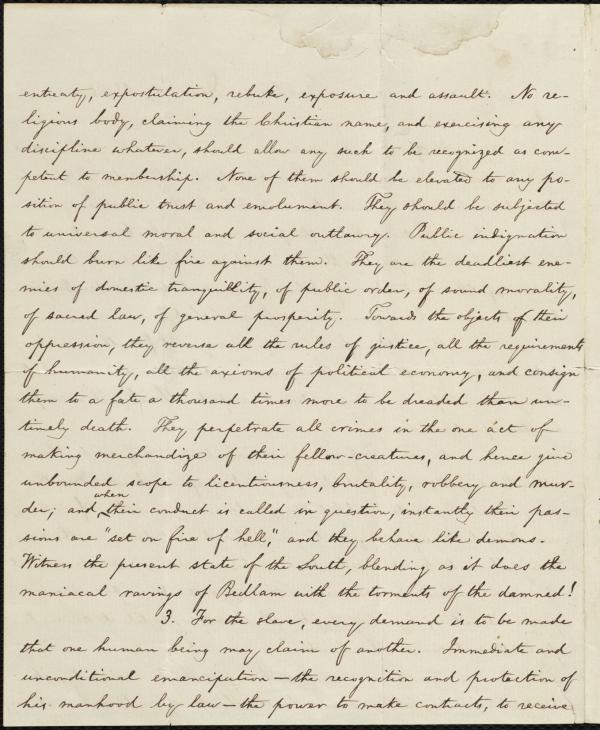 entreaty, expostulation, rebuke, exposure and assault. No re-
ligious body, claiming the Christian name, and exercising any
discipline whatever, should allow any such to be recognized as com-
petent to membership. None of them should be elevated to any po-
sition of public trust and emolument. They should be subjected
to universal moral and social outlawry. Public indignation
should burn like fire against them. They are the deadliest ene-
mies of domestic tranquillity, of public order, of sound morality,
of sacred law, of general prosperity. Towards the objects of their
oppression, they reverse all the rules of justice, all the requirements
of humanity, all the axioms of political economy, and consign
them to a fate a thousand times more to be dreaded than un-
timely death. They perpetrate all crimes in the one act of
making merchandize of their fellow-creatures, and hence give
unbounded scope to licentiousness, brutality, robbery and mur-
der; and when their conduct is called in question, instantly their pas-
sions are "set on fire of hell," and they behave like demons.
Witness the present state of the South, blending as it does the
maniacal ravings of Bedlam with the torments of the damned!
3. For the slave, every demand is to be made
that one human being may claim of another. Immediate and
unconditional emancipation—the recognition and protection of
his manhood by law—the power to make contracts, to receive